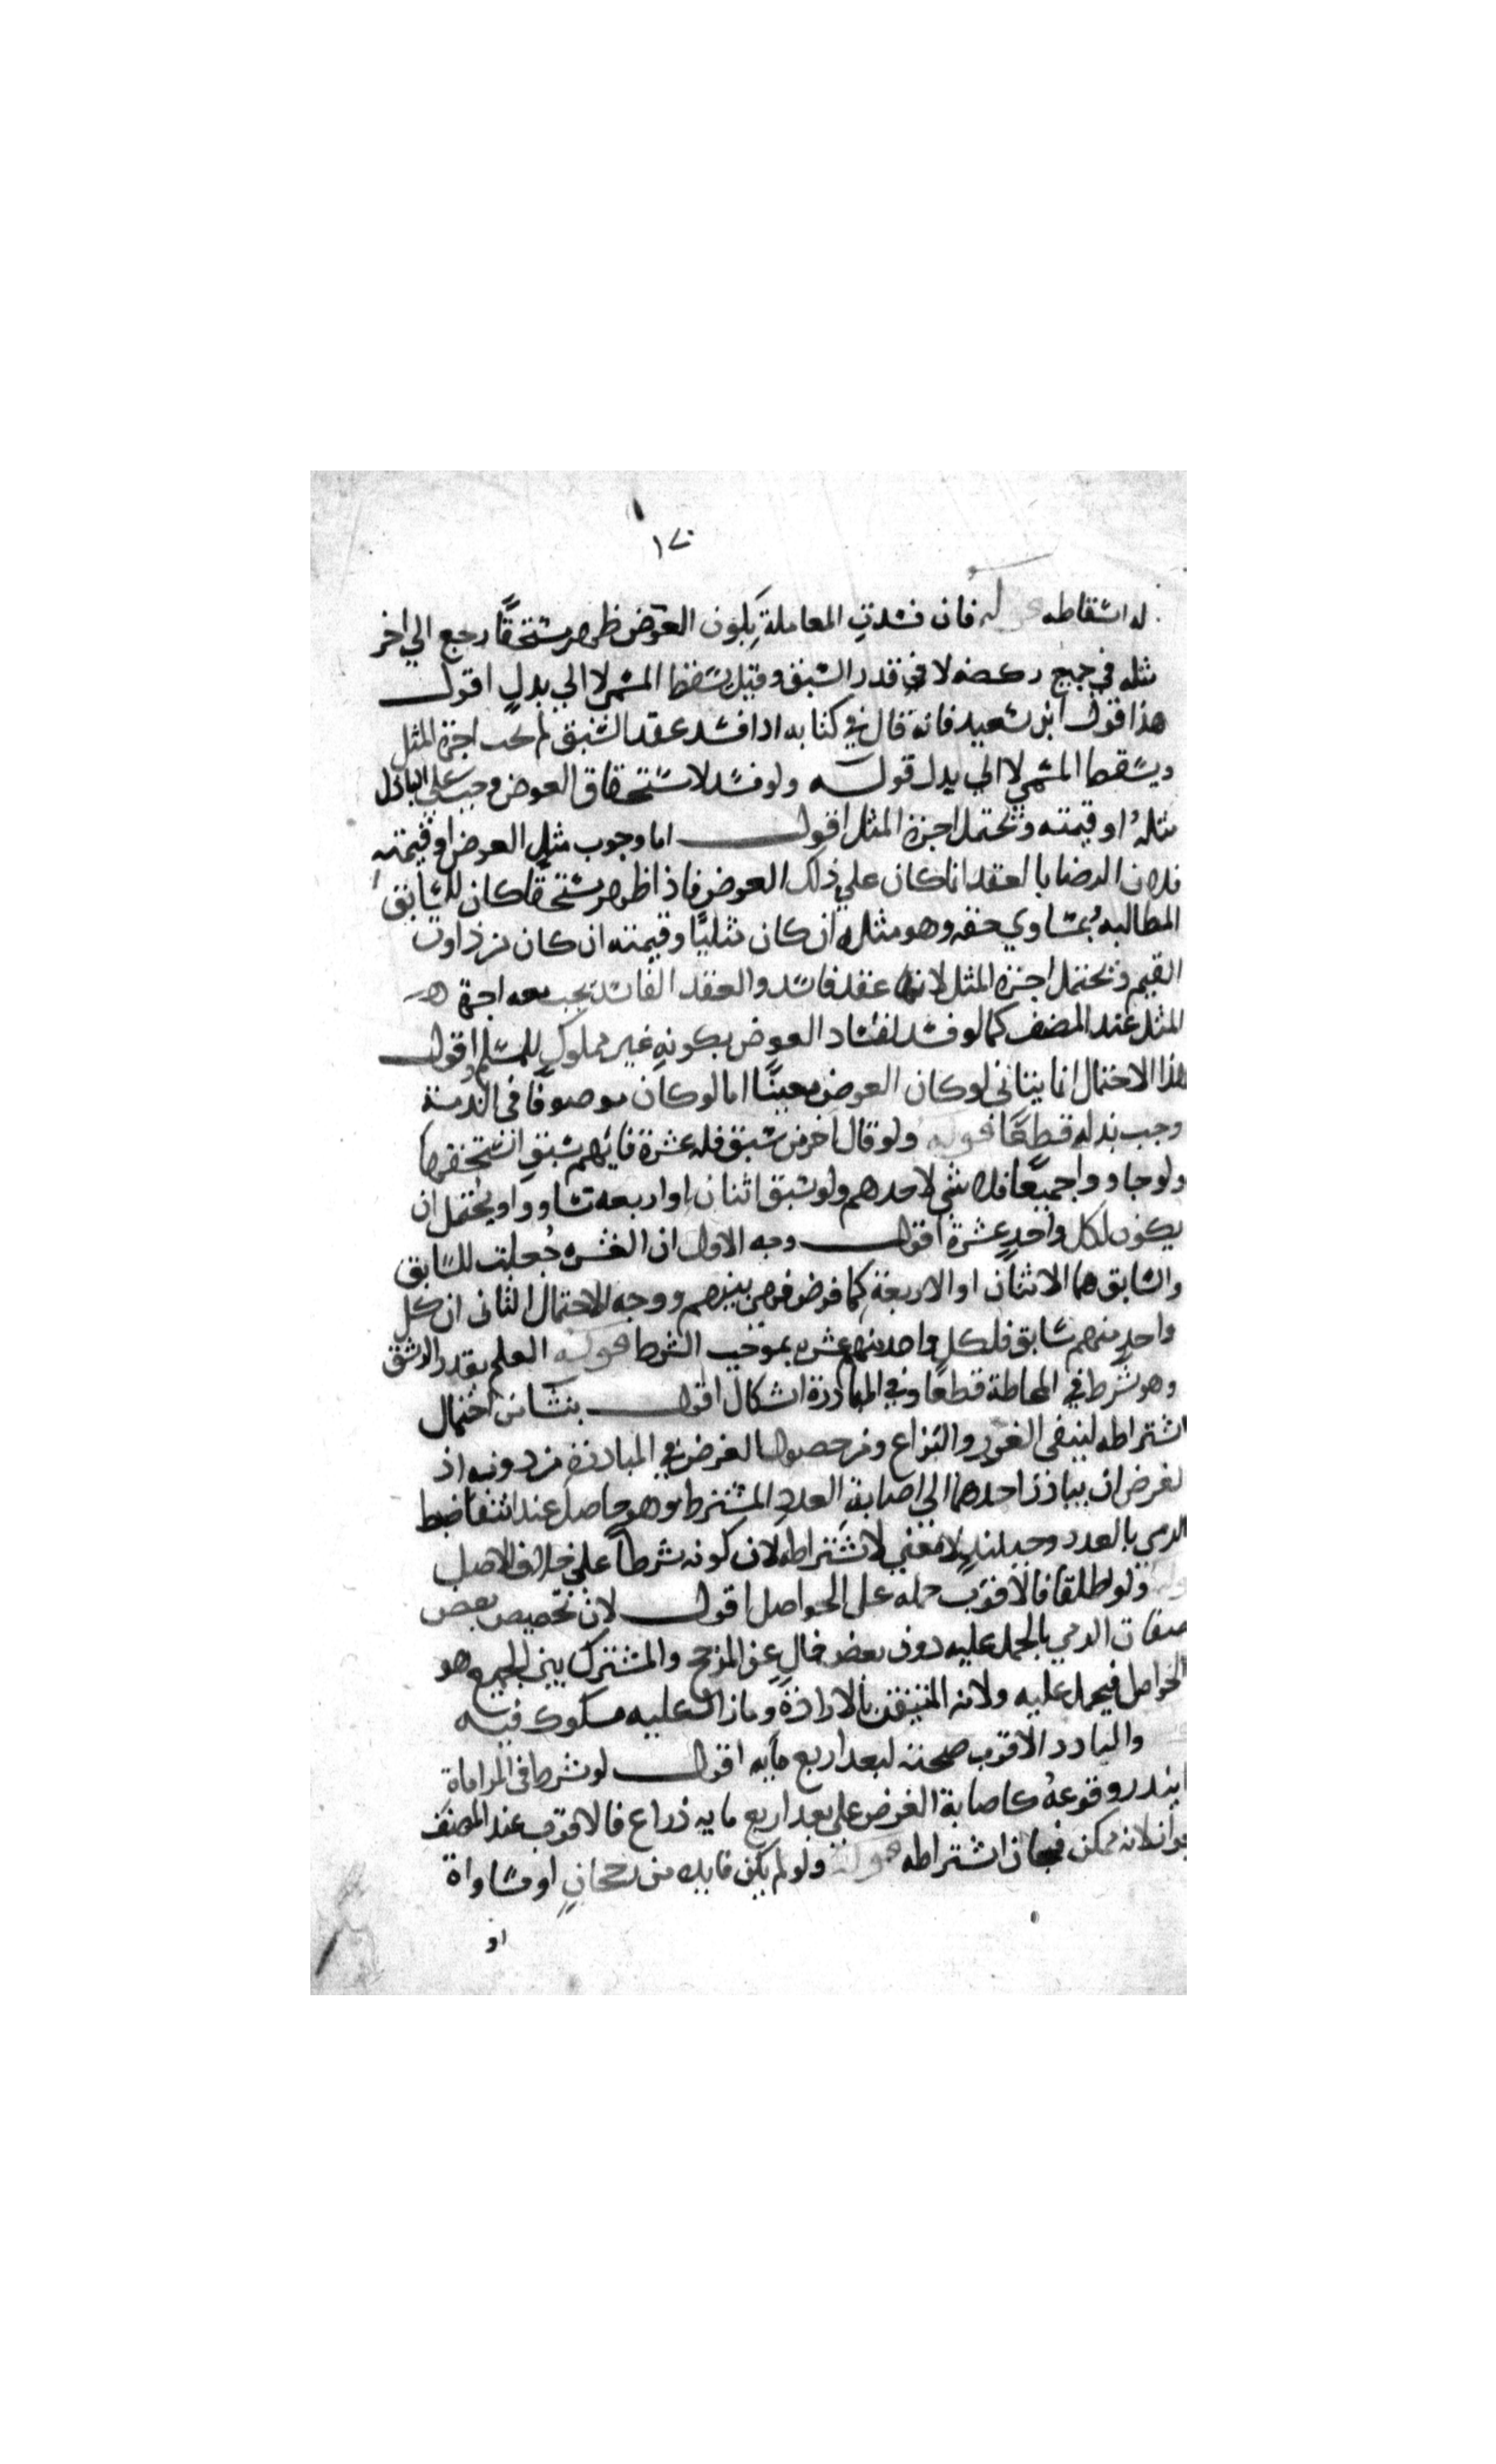 ١٧٠
له اسقاطه قوله فان فسدت المعاملة بكون العوض ظهر مستحقا رجع الي اجر
مثله في جميع ركضه لا في قدر السبق وقيل يسقط المسمى لا الي بدل اقول
هذا قول ابن سعيد فانه قال في كتابه اذا فسد عقد السبق لم تجب اجرة المثل
ويسقط المسمي لا الي بدل قوله ولو فسد لاستحقاق العوض وجب على الباذل
مثله او قيمته ويحتمل اجرة المثل اقول اما وجوب مثل العوض او قيمته
فلان الرضا بالعقد انما كان علي ذلك العوض فاذا ظهر مستحقا كان للسابق
المطالبه بمساوي حقه وهو مثله ان كان مثليا وقيمته ان كان من ذوات
القيم ويحتمل اجرة المثل لانها عقد فاسد والعقد الفاسد يجب معه اجرة
المثل عند المصنف كما لو فسد لفساد العوض بكونه غير مملوك للمسلم اقول
هذا الاحتمال انما يتاتى لو كان العوض معينا اما لو كان موصوفا في الذمة
وجب بدله قطعا قوله ولو قال لاخر من سبق فله عشرة فايهم سبق استحقها
ولو جاووا جميعا فلا شي لاحدهم ولو سبق اثنان او اربعه تساووا ويحتمل ان
يكون لكل واحد عشرة اقول وجه الاول ان العشره جعلت للسابق
والسابق هما الاثنان او الاربعة كما فرض فهي بينهم ووجه الاحتمال الثاني ان كل
واحد منهم سابق فلكل واحد منهم عشره بموجب الشرط قوله العلم بقدر الرشق
وهو شرط في المحاطة قطعا وفي المبادرة اشكال اقول ينشا من احتمال
اشتراطه لينفى الغرر والنزاع ومن حصول الغرض في المبادرة من دونه اذ
لغرض ان يبادر احدهما الي اصابة العدد المشترط وهو حاصل عند انتفا ضبط
الرمي بالعدد وحينئذ لا معني لاشتراطه لان كونه شرطا علي خلاف الاصل
ولو اطلقا فالاقرب حمله على الحواصل اقول لان تخصيص بعض
صفات الرمي بالحمل عليه دون بعض خال عن المرجح والمشترك بين الجميع هو
الحواصل فيحمل عليه ولانه المتيقن بالارادة وما زاد عليه مشكوك فيه
والنادر الاقرب صحته لبعد اربع مايه اقول لو شرط في المراماة
ايندر وقوعه كاصابة الغرض علي بعد اربع مايه ذراع فالاقرب عند المصنف
جوازه لانه ممكن فجاز اشتراطه قوله ولو لم يكن فايده من رجحان او مساواة
او